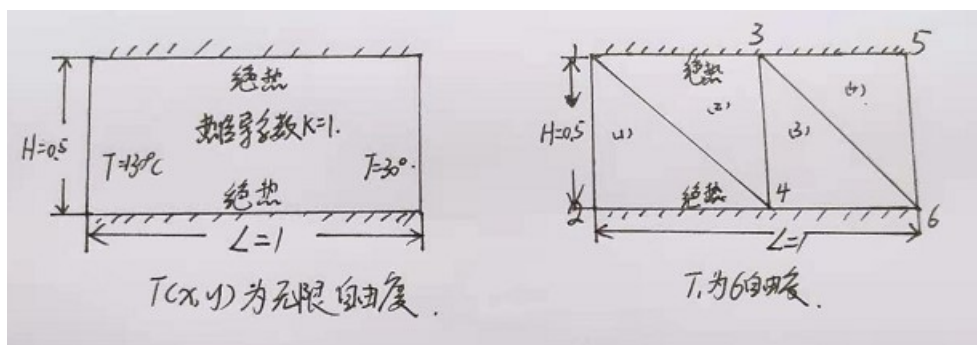 绝热
热传导系数K=1.
H=0.5
T=130°C
T=30°.
绝热
L=1
T(x,y)为无限自由度.
1
3
5
绝热
(1)
(2)
(3)
(4)
H=0.5
绝热
2
4
6
L=1
T,为6自由度.